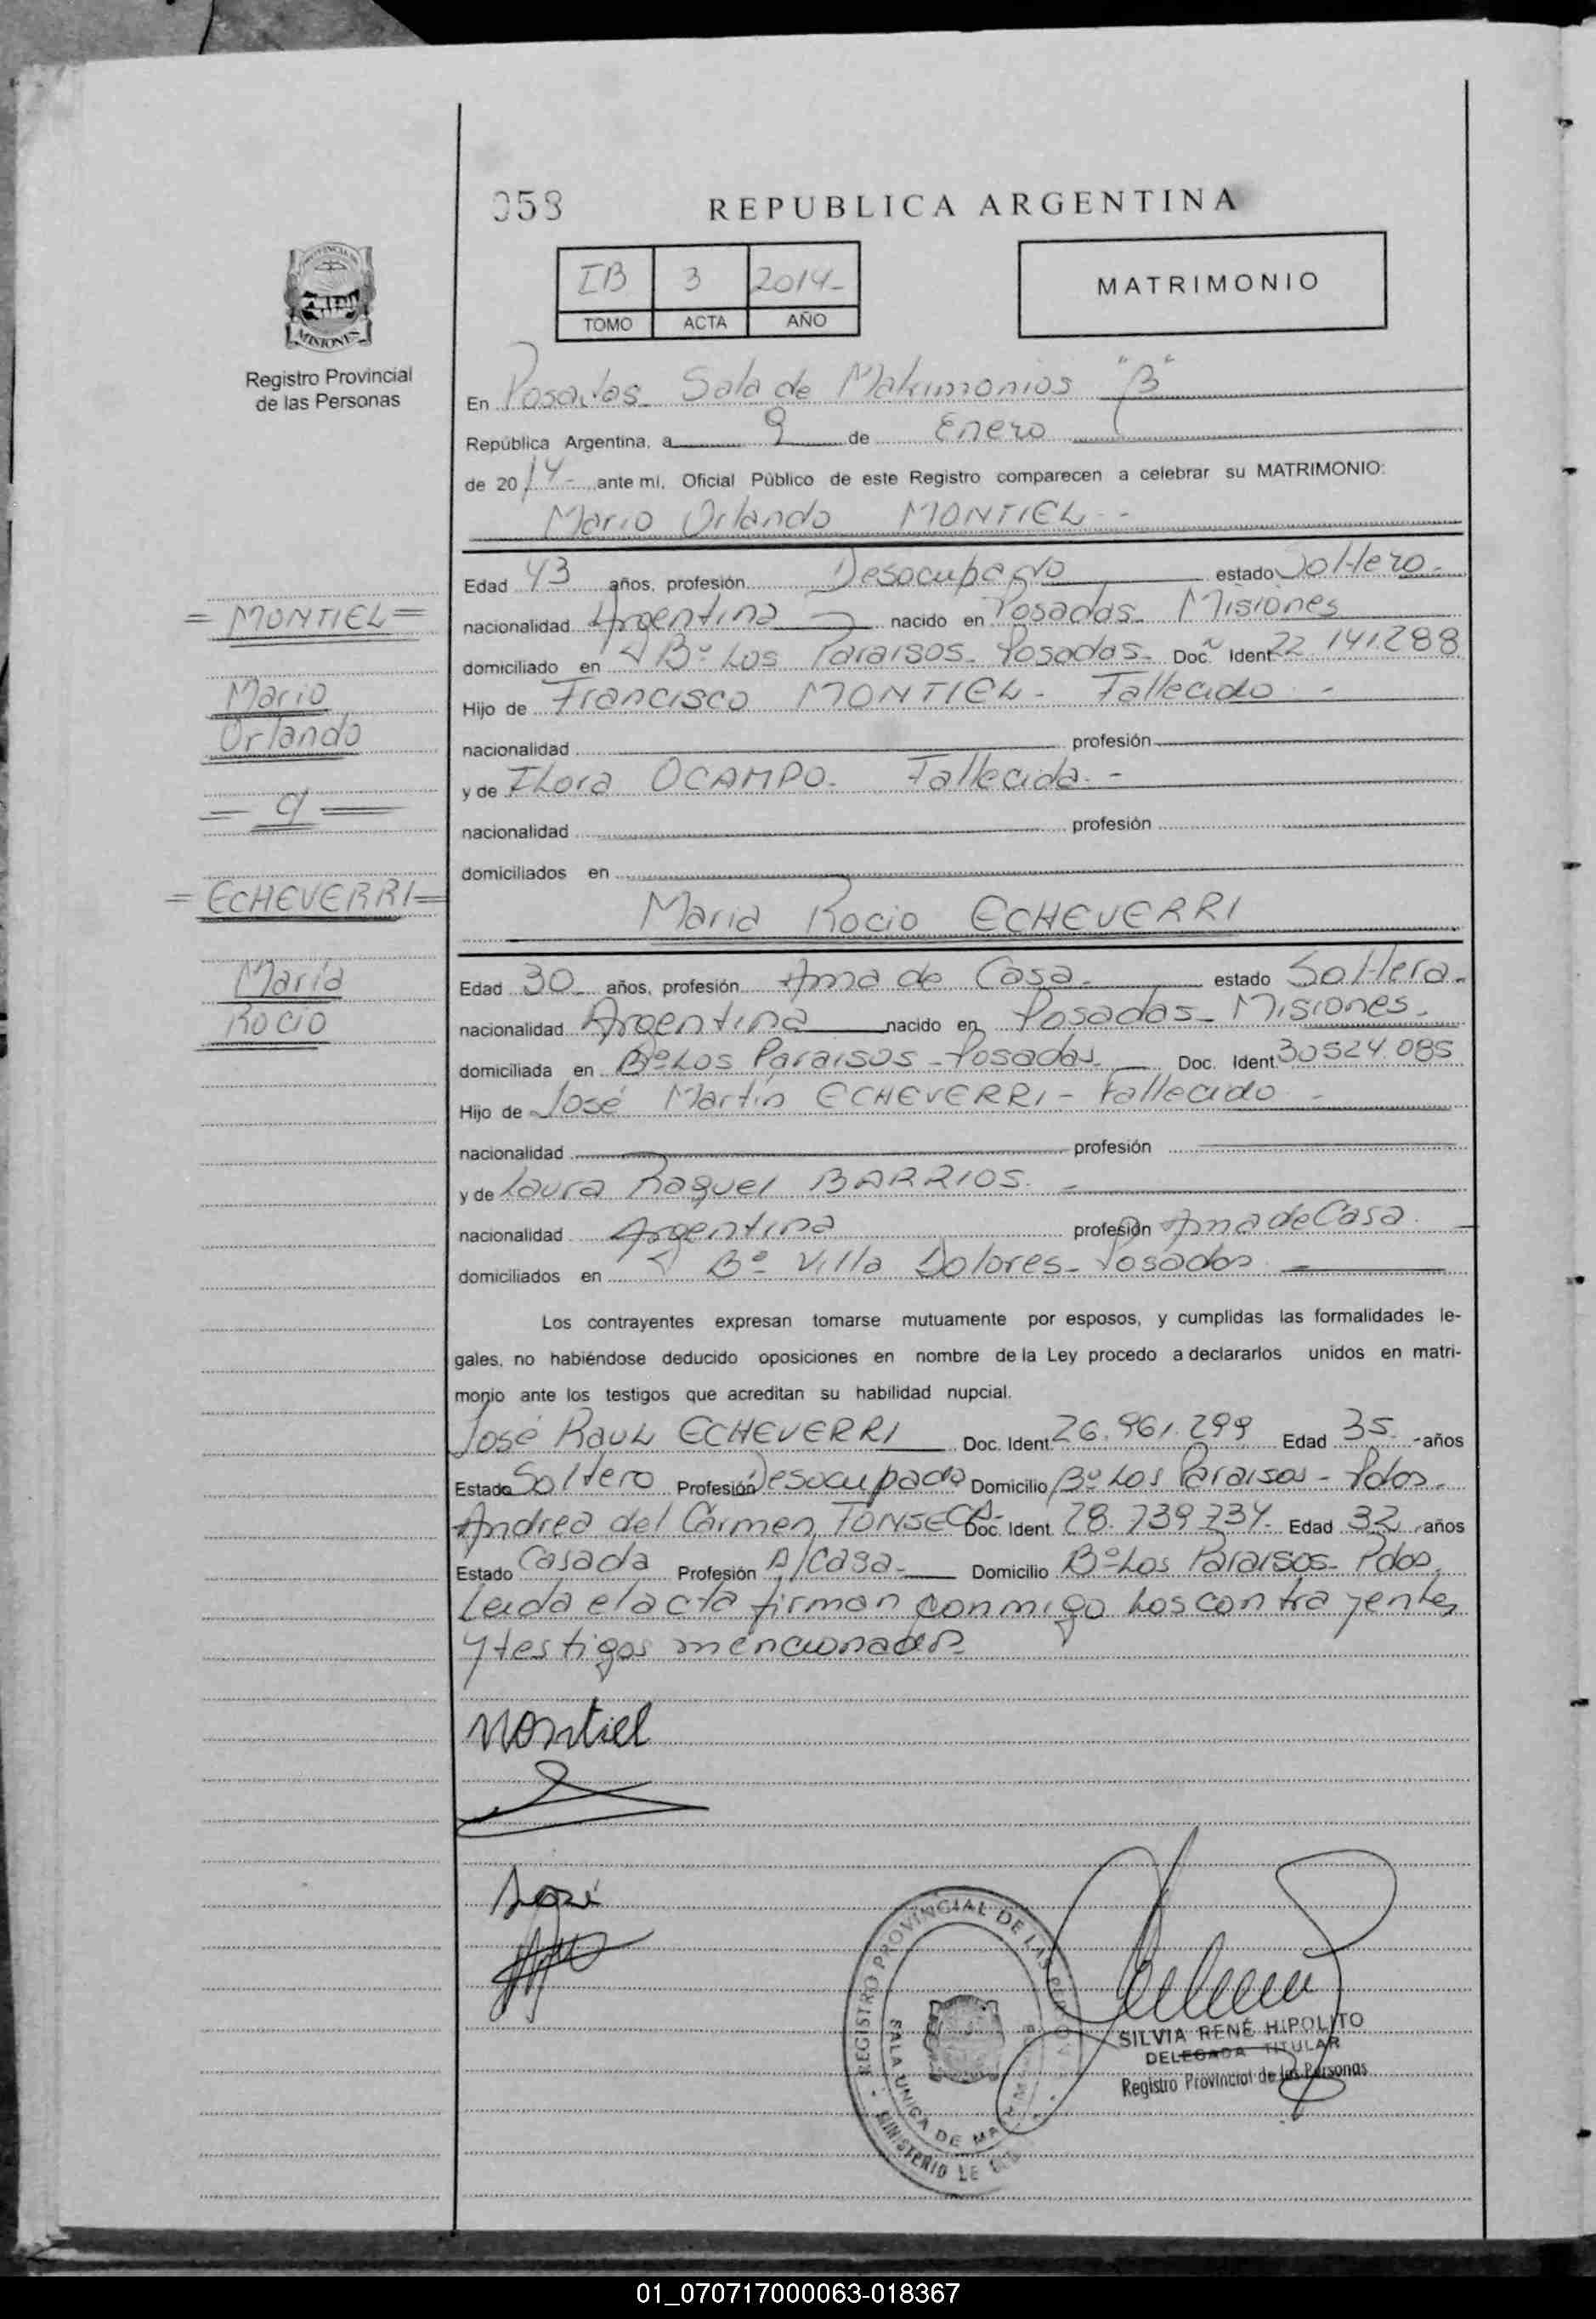 058
REPUBLICA ARGENTINA
PROVINCIA DE
MISIONES
Registro Provincial
de las Personas
IB 3 2014-
TOMO ACTA AÑO
MATRIMONIO
En Posadas Sala de Matrimonios "B"
República Argentina, a 9 de Enero
de 2014- ante mi, Oficial Público de este Registro comparecen a celebrar su MATRIMONIO:
Mario Orlando MONTIEL-
Edad 43 años, profesión Desocupado estado Soltero-
= MONTIEL =
nacionalidad Argentina nacido en Posadas Misiones
domiciliado en Bº Los Paraisos- Posadas- Doc. Ident. 22.141.288
Mario
Orlando
Hijo de Francisco MONTIEL- Fallecido -
nacionalidad profesión
y de Flora OCAMPO- Fallecida.-
= c/ =
nacionalidad profesión
domiciliados en
= ECHEVERRI =
Maria Rocio ECHEVERRI
María
Rocio
Edad 30 años, profesión Ama de Casa- estado Soltera-
nacionalidad Argentina nacido en Posadas- Misiones-
domiciliada en Bº Los Paraisos - Posadas- Doc. Ident. 30524.085
Hijo de José Martín ECHEVERRI- Fallecido -
nacionalidad profesión
y de Laura Raquel BARRIOS. -
nacionalidad Argentina profesión Ama de Casa.
domiciliados en Bº Villa Dolores- Posadas
Los contrayentes expresan tomarse mutuamente por esposos, y cumplidas las formalidades le-
gales, no habiéndose deducido oposiciones en nombre de la Ley procedo a declararlos unidos en matri-
monio ante los testigos que acreditan su habilidad nupcial.
José Raul ECHEVERRI Doc. Ident. 26.961.299 Edad 35 años
Estado Soltero Profesión Desocupado Domicilio Bº Los Paraisos - Pdas.
Andrea del Cármen FONSECA- Doc. Ident. 28.739.734- Edad 32 años
Estado Casada Profesión A/Casa- Domicilio Bº Los Paraisos- Pdas.
Leida el acta firman conmigo los contrayentes
y testigos mencionados
Montiel
José
REGISTRO PROVINCIAL DE LAS
SALA UNICA DE
MINISTERIO DE
SILVIA RENÉ HIPOLITO
DELEGADA TITULAR
Registro Provincial de las Personas
01_070717000063-018367